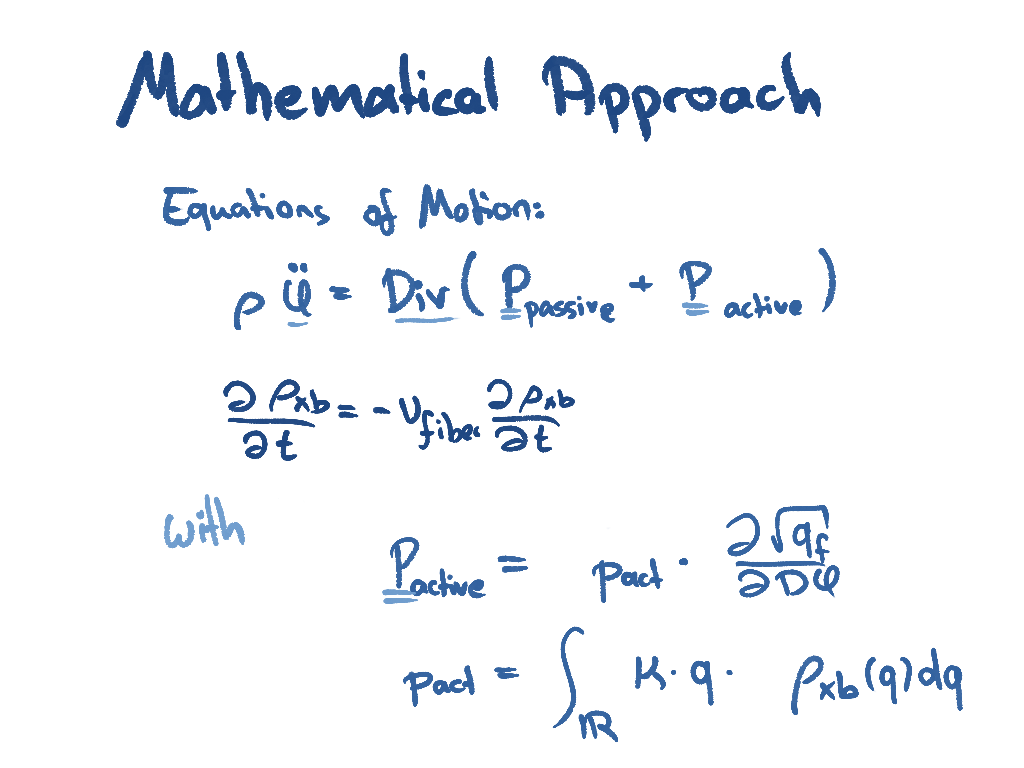 Mathematical Approach
Equations of Motion:
ρ φ̈ = Div ( P passive + P active )
∂ρxb/∂t = - υfiber ∂ρxb/∂t
with
Pactive = pact · ∂√qf/∂Dφ
pact = ∫ℝ K · q · ρxb(q)dq